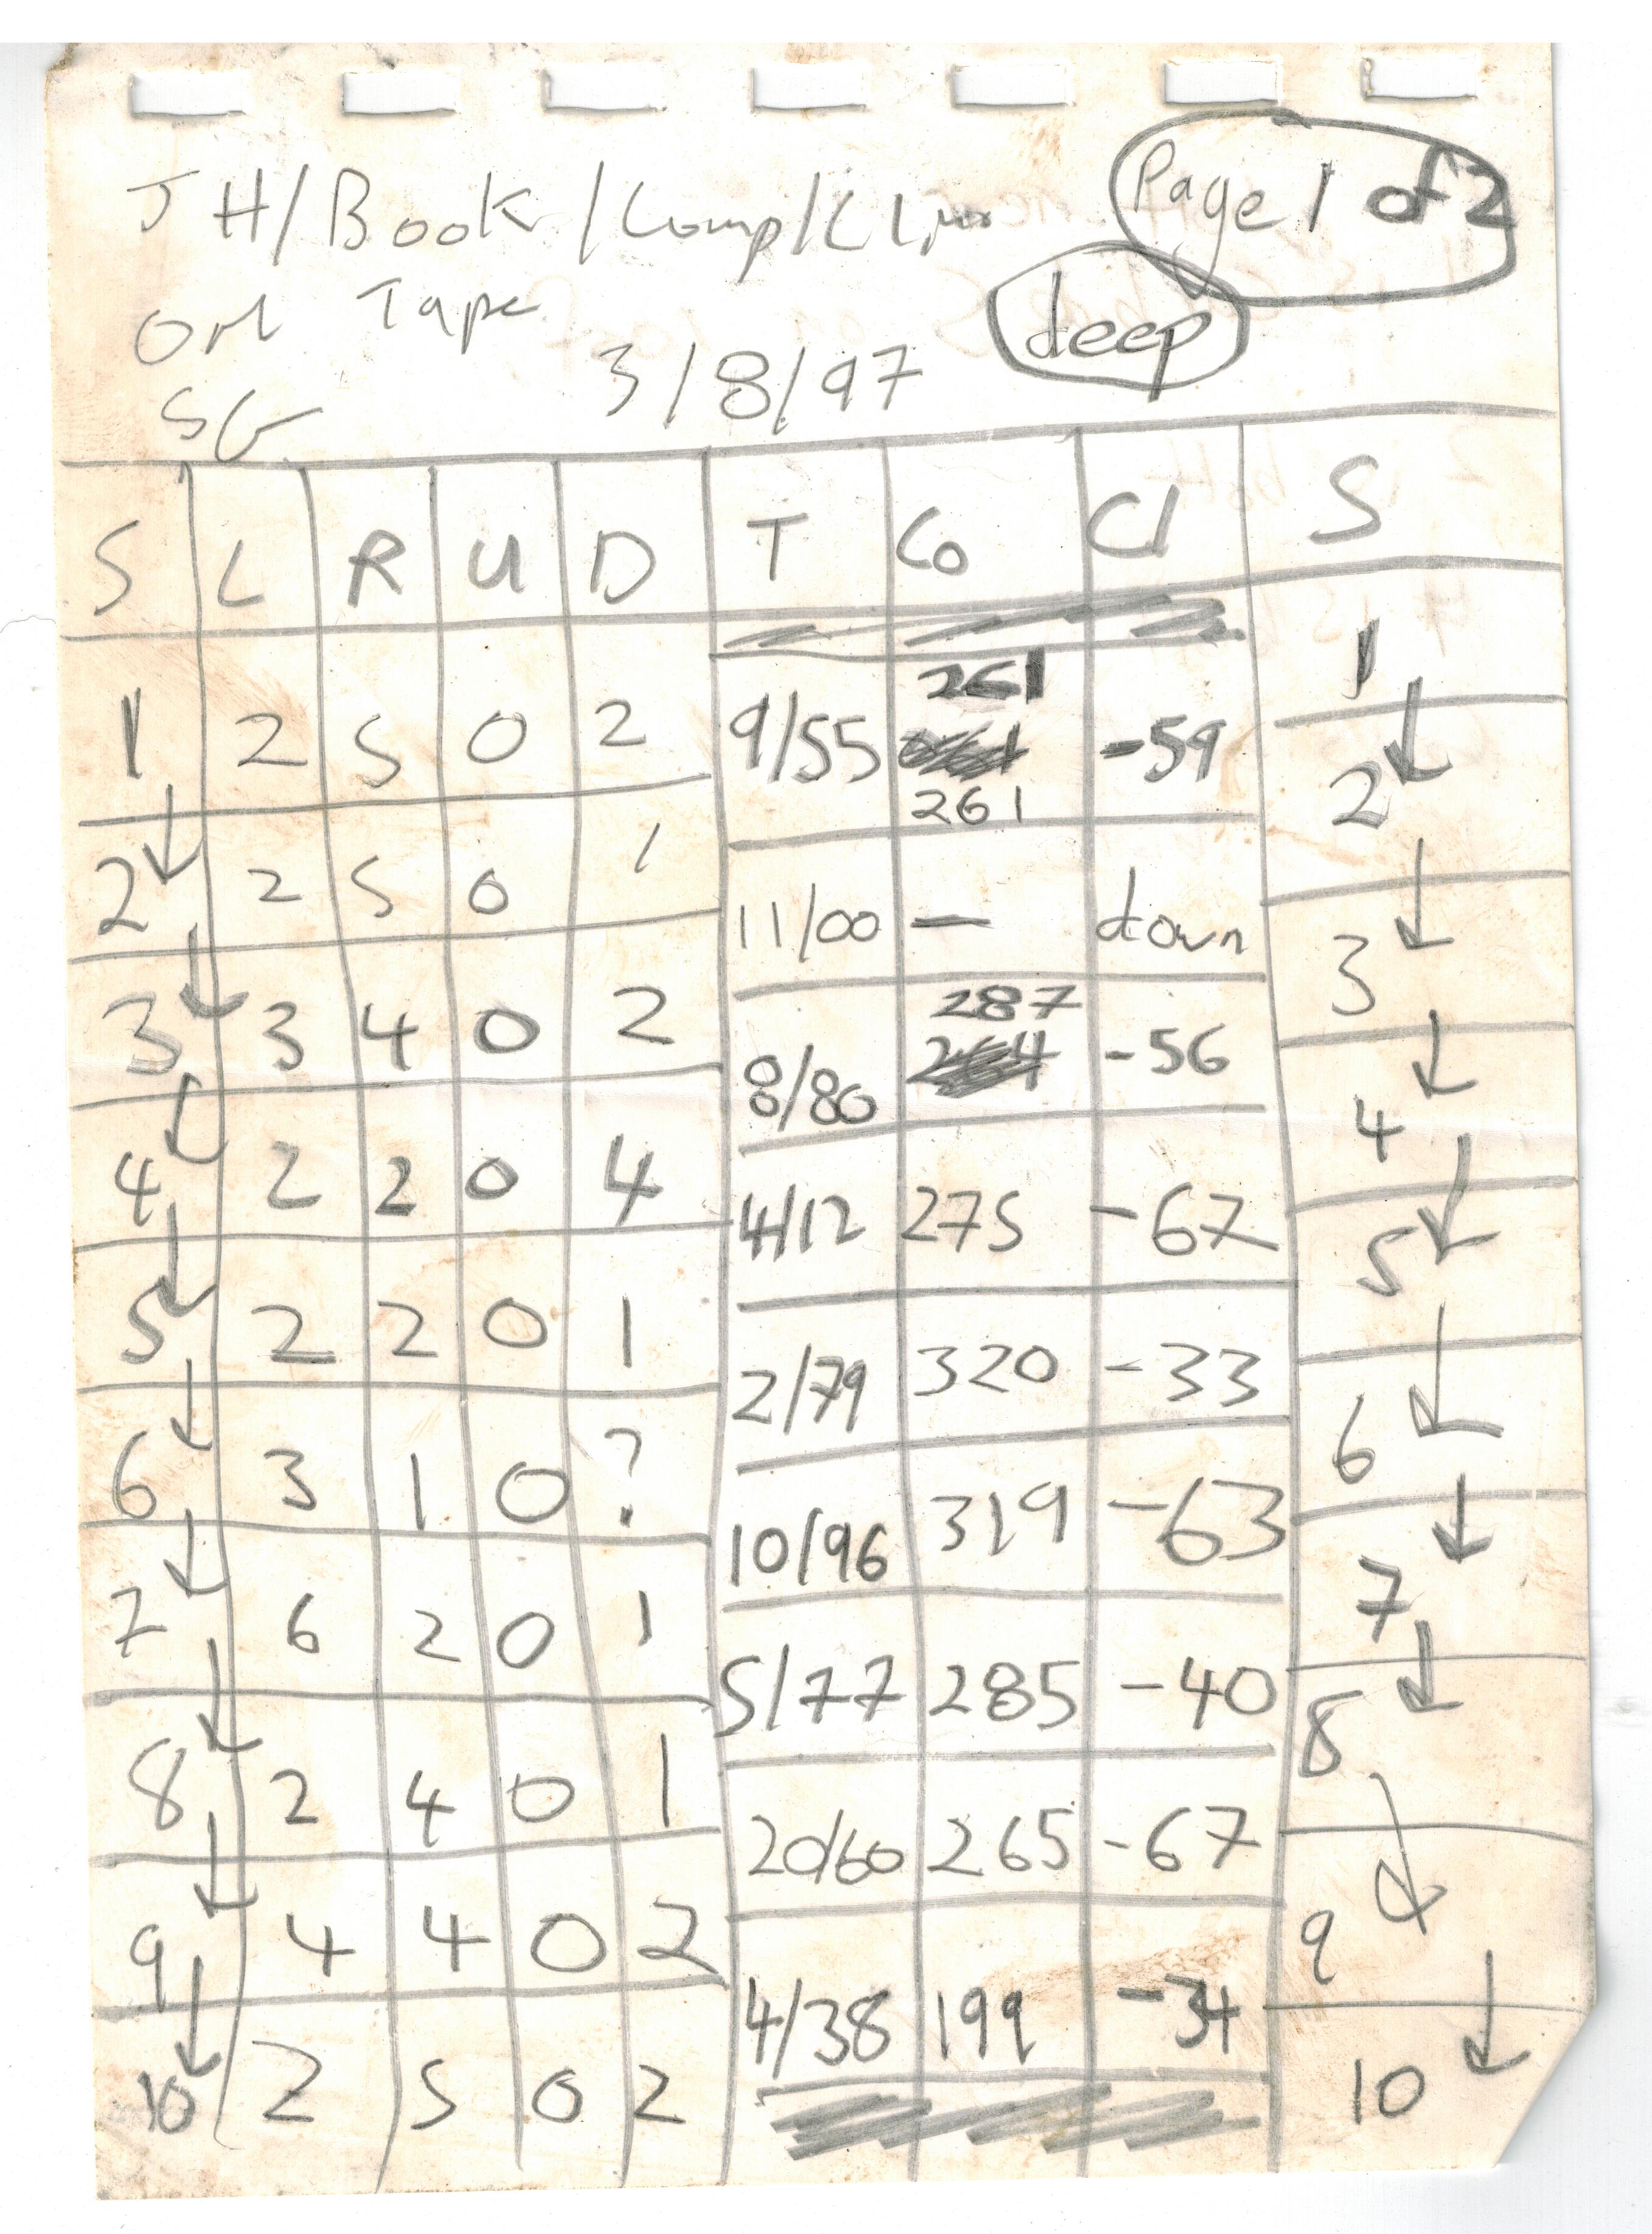 JH/Book/Comp/Clino
Page 1 of 2
Tape
deep
SG
3/8/97
S L R U D T Co Cl S
1 2 5 0 2 9/55 261 261 -59 1
2 2 5 0 1 11/00 — down 2
3 3 4 0 2 8/80 287 -56 3
4 2 2 0 4 4/12 275 -67 4
5 2 2 0 1 2/79 320 -33 5
6 3 1 0 ? 10/96 319 -63 6
7 6 2 0 1 5/77 285 -40 7
8 2 4 0 1 20/60 265 -67 8
9 4 4 0 2 4/38 199 -34 9
10 2 5 0 2 10